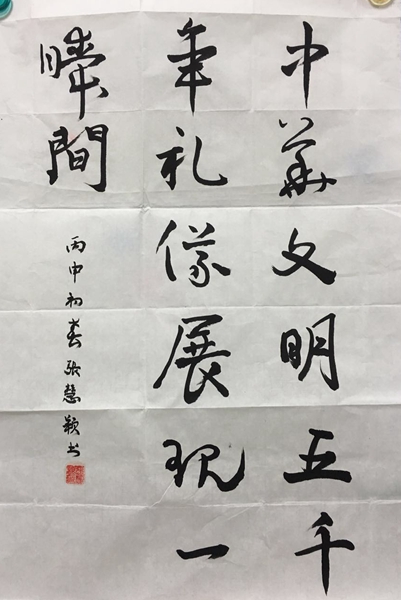 中華文明五千
年礼儀展現一
瞬間
丙申初春張慧穎书